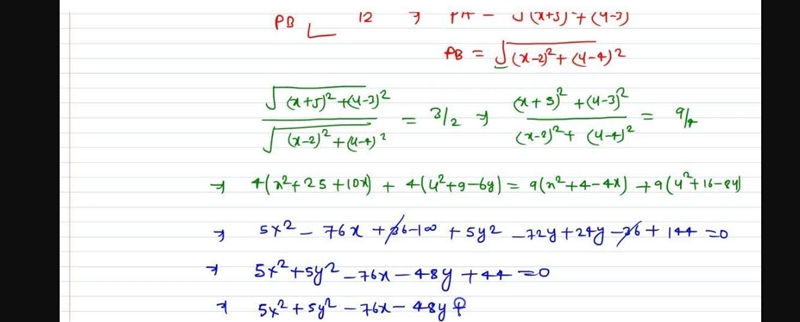 PB 12 ⇒ PA = √(x+5)² + (y-3)
PB = √(x-2)² + (y-4)²
√(x+5)² + (y-3)² / √(x-2)² + (y-4)² = 3/2 ⇒ (x+5)² + (y-3)² / (x-2)² + (y-4)² = 9/4
⇒ 4(x² + 25 + 10x) + 4(y² + 9 - 6y) = 9(x² + 4 - 4x) + 9(y² + 16 - 8y)
⇒ 5x² - 76x + 36 - 100 + 5y² - 72y + 24y - 36 + 144 = 0
⇒ 5x² + 5y² - 76x - 48y + 44 = 0
⇒ 5x² + 5y² - 76x - 48y